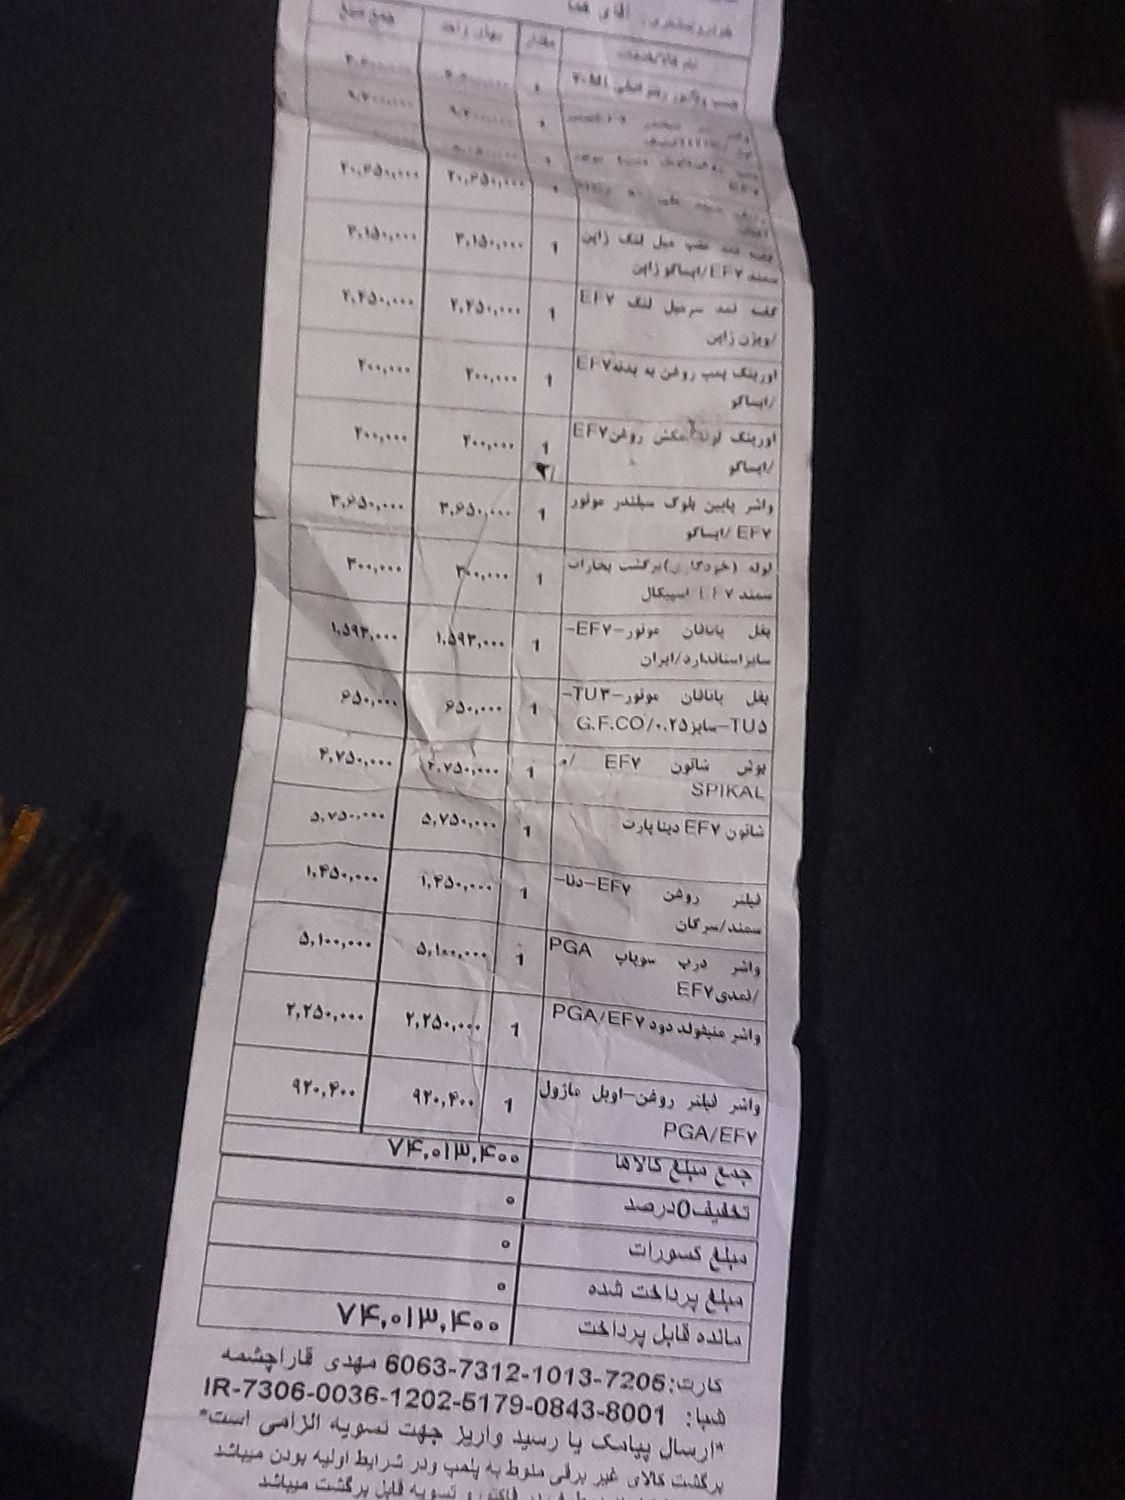 آقای هما
نام کالا/خدمات مقدر بهای واحد جمع مبلغ
۲۰,۶۵۰,۰۰۰ ۲۰,۶۵۰,۰۰۰
کاسه نمد عقب میل لنگ ژاپن 1 ۳,۱۵۰,۰۰۰ ۳,۱۵۰,۰۰۰
سمند EF۷/ایساکو ژاپن
کاسه نمد سرمیل لنگ EF۷ 1 ۲,۲۵۰,۰۰۰ ۲,۲۵۰,۰۰۰
/ویژن ژاپن
اورینگ پمپ روغن به بدنهEF۷ 1 ۲۰۰,۰۰۰ ۲۰۰,۰۰۰
/ایساکو
اورینگ لوله مکش روغنEF۷ 1 ۲۰۰,۰۰۰ ۲۰۰,۰۰۰
/ایساکو
واشر پایین بلوک سیلندر موتور 1 ۳,۶۵۰,۰۰۰ ۳,۶۵۰,۰۰۰
EF۷ /ایساکو
لوله (خردگاری)برگشت بخارات 1 ۳۰۰,۰۰۰ ۳۰۰,۰۰۰
سمند EF۷ اسپیکال
بغل یاتاقان موتور-EF۷- 1 ۱,۵۹۳,۰۰۰ ۱,۵۹۳,۰۰۰
سایزاستاندارد/ایران
بغل یاتاقان موتور-TU۳- 1 ۶۵۰,۰۰۰ ۶۵۰,۰۰۰
TU۵-سایز۰.۲۵/G.F.CO
بوش شاتون EF۷ /م 1 ۲,۷۵۰,۰۰۰ ۲,۷۵۰,۰۰۰
SPIKAL
شاتون EF۷ دیناپارت 1 ۵,۷۵۰,۰۰۰ ۵,۷۵۰,۰۰۰
فیلتر روغن EF۷-دنا- 1 ۱,۴۵۰,۰۰۰ ۱,۴۵۰,۰۰۰
سمند/سرکان
واشر درب سوپاپ PGA 1 ۵,۱۰۰,۰۰۰ ۵,۱۰۰,۰۰۰
/نمدیEF۷
واشر منیفولد دود PGA/EF۷ 1 ۲,۲۵۰,۰۰۰ ۲,۲۵۰,۰۰۰
واشر فیلتر روغن-اویل ماژول 1 ۹۲۰,۴۰۰ ۹۲۰,۴۰۰
PGA/EF۷
جمع مبلغ کالاها ۷۴,۰۱۳,۴۰۰
تخفیف0درصد ۰
مبلغ کسورات ۰
مبلغ پرداخت شده ۰
مانده قابل پرداخت ۷۴,۰۱۳,۴۰۰
کارت:6063-7312-1013-7206 مهدی قاراچشمه
شبا: IR-7306-0036-1202-5179-0843-8001
*ارسال پیامک یا رسید واریز جهت تسویه الزامی است*
برگشت کالای غیر برقی منوط به پلمپ ودر شرایط اولیه بودن میباشد
فاکتور و تسویه قابل برگشت میباشد